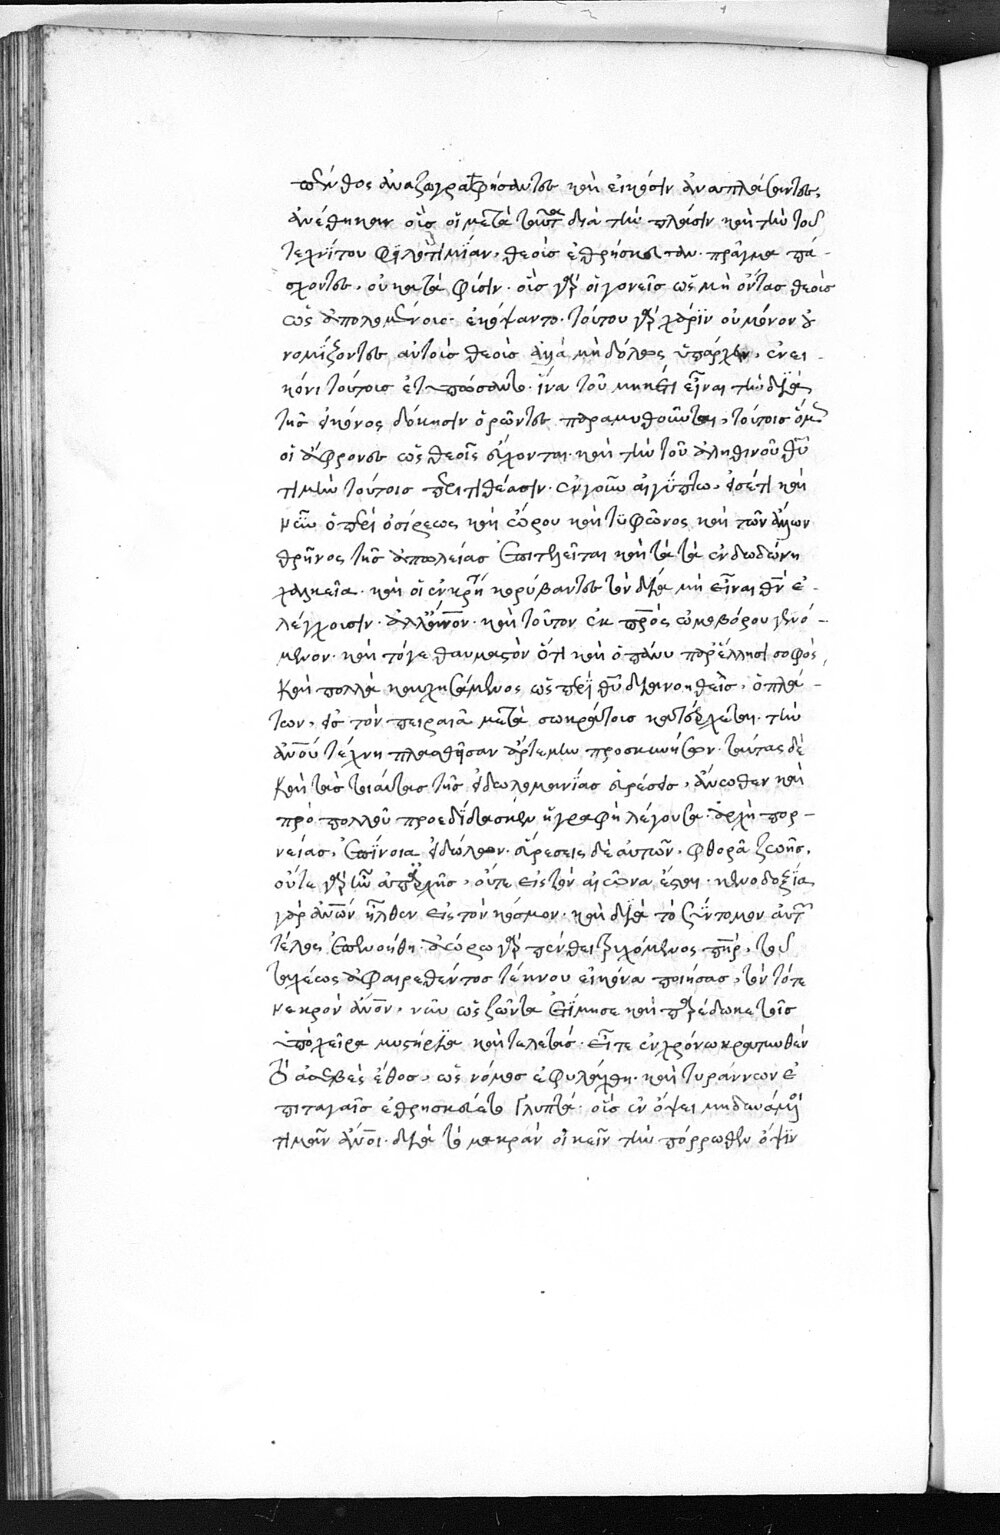 πένθος ἀναζωγραφήσαντες καὶ εἰκόσιν ἀναπλάσαντες,
ἀνέθηκαν οἷς οἱ μετὰ ταῦτα διὰ τὴν πλάσιν καὶ τὴν τοῦ
τεχνίτου φιλοτιμίαν, θεοῖς ἐθρήσκευον. πρᾶγμα πά-
σχοντες, οὐ κατὰ φύσιν. οἷς γὰρ οἱ γονεῖς ὡς μὴ ὄντας θεοῖς
ὡς ἀπολομένοις ἐκόψαντο. τούτου γὰρ χάριν οὐ μόνον
νομίζοντες αὐτοὺς θεοὺς ἀλλὰ μηδόλως ὑπάρχειν, ἐν εἰ-
κόνι τούτοις ἐτυπώσαντο. ἵνα τοῦ μηκέτι εἶναι τὴν διὰ
τῆς εἰκόνος δόκησιν ὁρῶντες παραμυθοῦνται, τούτοις ὅμως
οἱ ἄφρονες ὡς θεοῖς εὔχονται. καὶ τὴν τοῦ ἀληθινοῦ θῦ
τιμὴν τούτοις περιτιθέασιν. ἐν γοῦν αἰγύπτῳ, εἰσέτι καὶ
νῦν ὁ περὶ ὀσίρεως καὶ ὥρου καὶ τυφῶνος καὶ τῶν ἄλλων
θρῆνος τῆς ἀπωλείας ἐπιτελεῖται καὶ τὰ ἐν δωδώνη
χαλκεῖα. καὶ οἱ ἐν κρήτη κορύβαντες τὸν δία μὴ εἶναι θν ἐ-
λέγχουσιν. ἀλλ' ἄνον. καὶ τοῦτον ἐκ πρς ὠμοβόρου γενό-
μενον. καὶ τόγε θαυμαστὸν ὅτι καὶ ὁ πάνυ παρ' ἕλλησι σοφὸς,
καὶ πολλὰ καυχησάμενος ὡς περὶ θῦ διανοηθεὶς, ὁ πλά-
των, εἰς τὸν πειραιᾶ μετὰ σωκράτους κατέρχεται. τὴν
ἀνοῦ τέχνη πλασθεῖσαν ἄρτεμιν προσκυνήσων. ταύτας δὲ
καὶ τὰς τοιαύτας τῆς εἰδωλομανίας εὑρέσεις, ἄνωθεν καὶ
πρὸ πολλοῦ προεδίδασκεν ἡ γραφὴ λέγουσα. ἀρχὴ πορ-
νείας, ἐπίνοια εἰδώλων. εὑρέσεις δὲ αὐτῶν, φθορὰ ζωῆς,
οὔτε γὰρ ἦν ἀπ' ἀρχῆς, οὔτε εἰς τὸν αἰῶνα ἔσται. κενοδοξία
γὰρ ἀνων ἦλθεν εἰς τὸν κόσμον. καὶ διὰ τὸ σύντομον αὐτῶν
τέλος ἐπενοήθη. ἀώρῳ γὰρ πένθει τρυχόμενος πηρ, τοῦ
ταχέως ἀφαιρεθέντος τέκνου εἰκόνα ποιήσας, τὸν τότε
νεκρὸν ἄνον, νῦν ὡς ζῶντα ἐτίμησε καὶ παρέδωκε τοῖς
ὑποχεῖρα μυστήρια καὶ τελετάς. εἶτε ἐν χρόνῳ κρατυνθὲν
τὸ ἀσεβὲς ἔθος, ὡς νόμος ἐφυλάχθη. καὶ τυράννων ἐ-
πιταγαῖς ἐθρησκεύετο γλυπτά. οὓς ἐν ὄψει μὴ δυνάμενοι
τιμᾶν ἄνοι διὰ τὸ μακρὰν οἰκεῖν τὴν πόρρωθεν ὄψιν